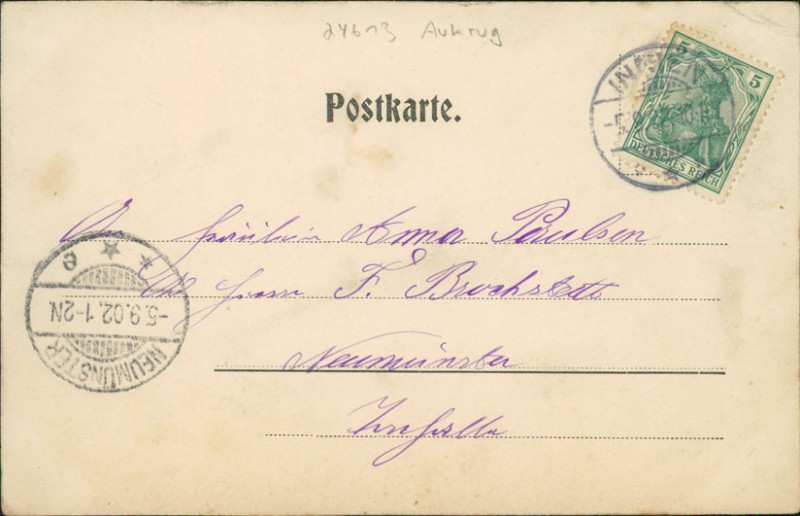 24613 Aukrug
5 5
DEUTSCHES REICH
INNIEN
Postkarte.
An Fräulein Anna Paulsen
Herrn F. Brockstett
Neumünster
NEUMÜNSTER
-5.9.02.1-2N.